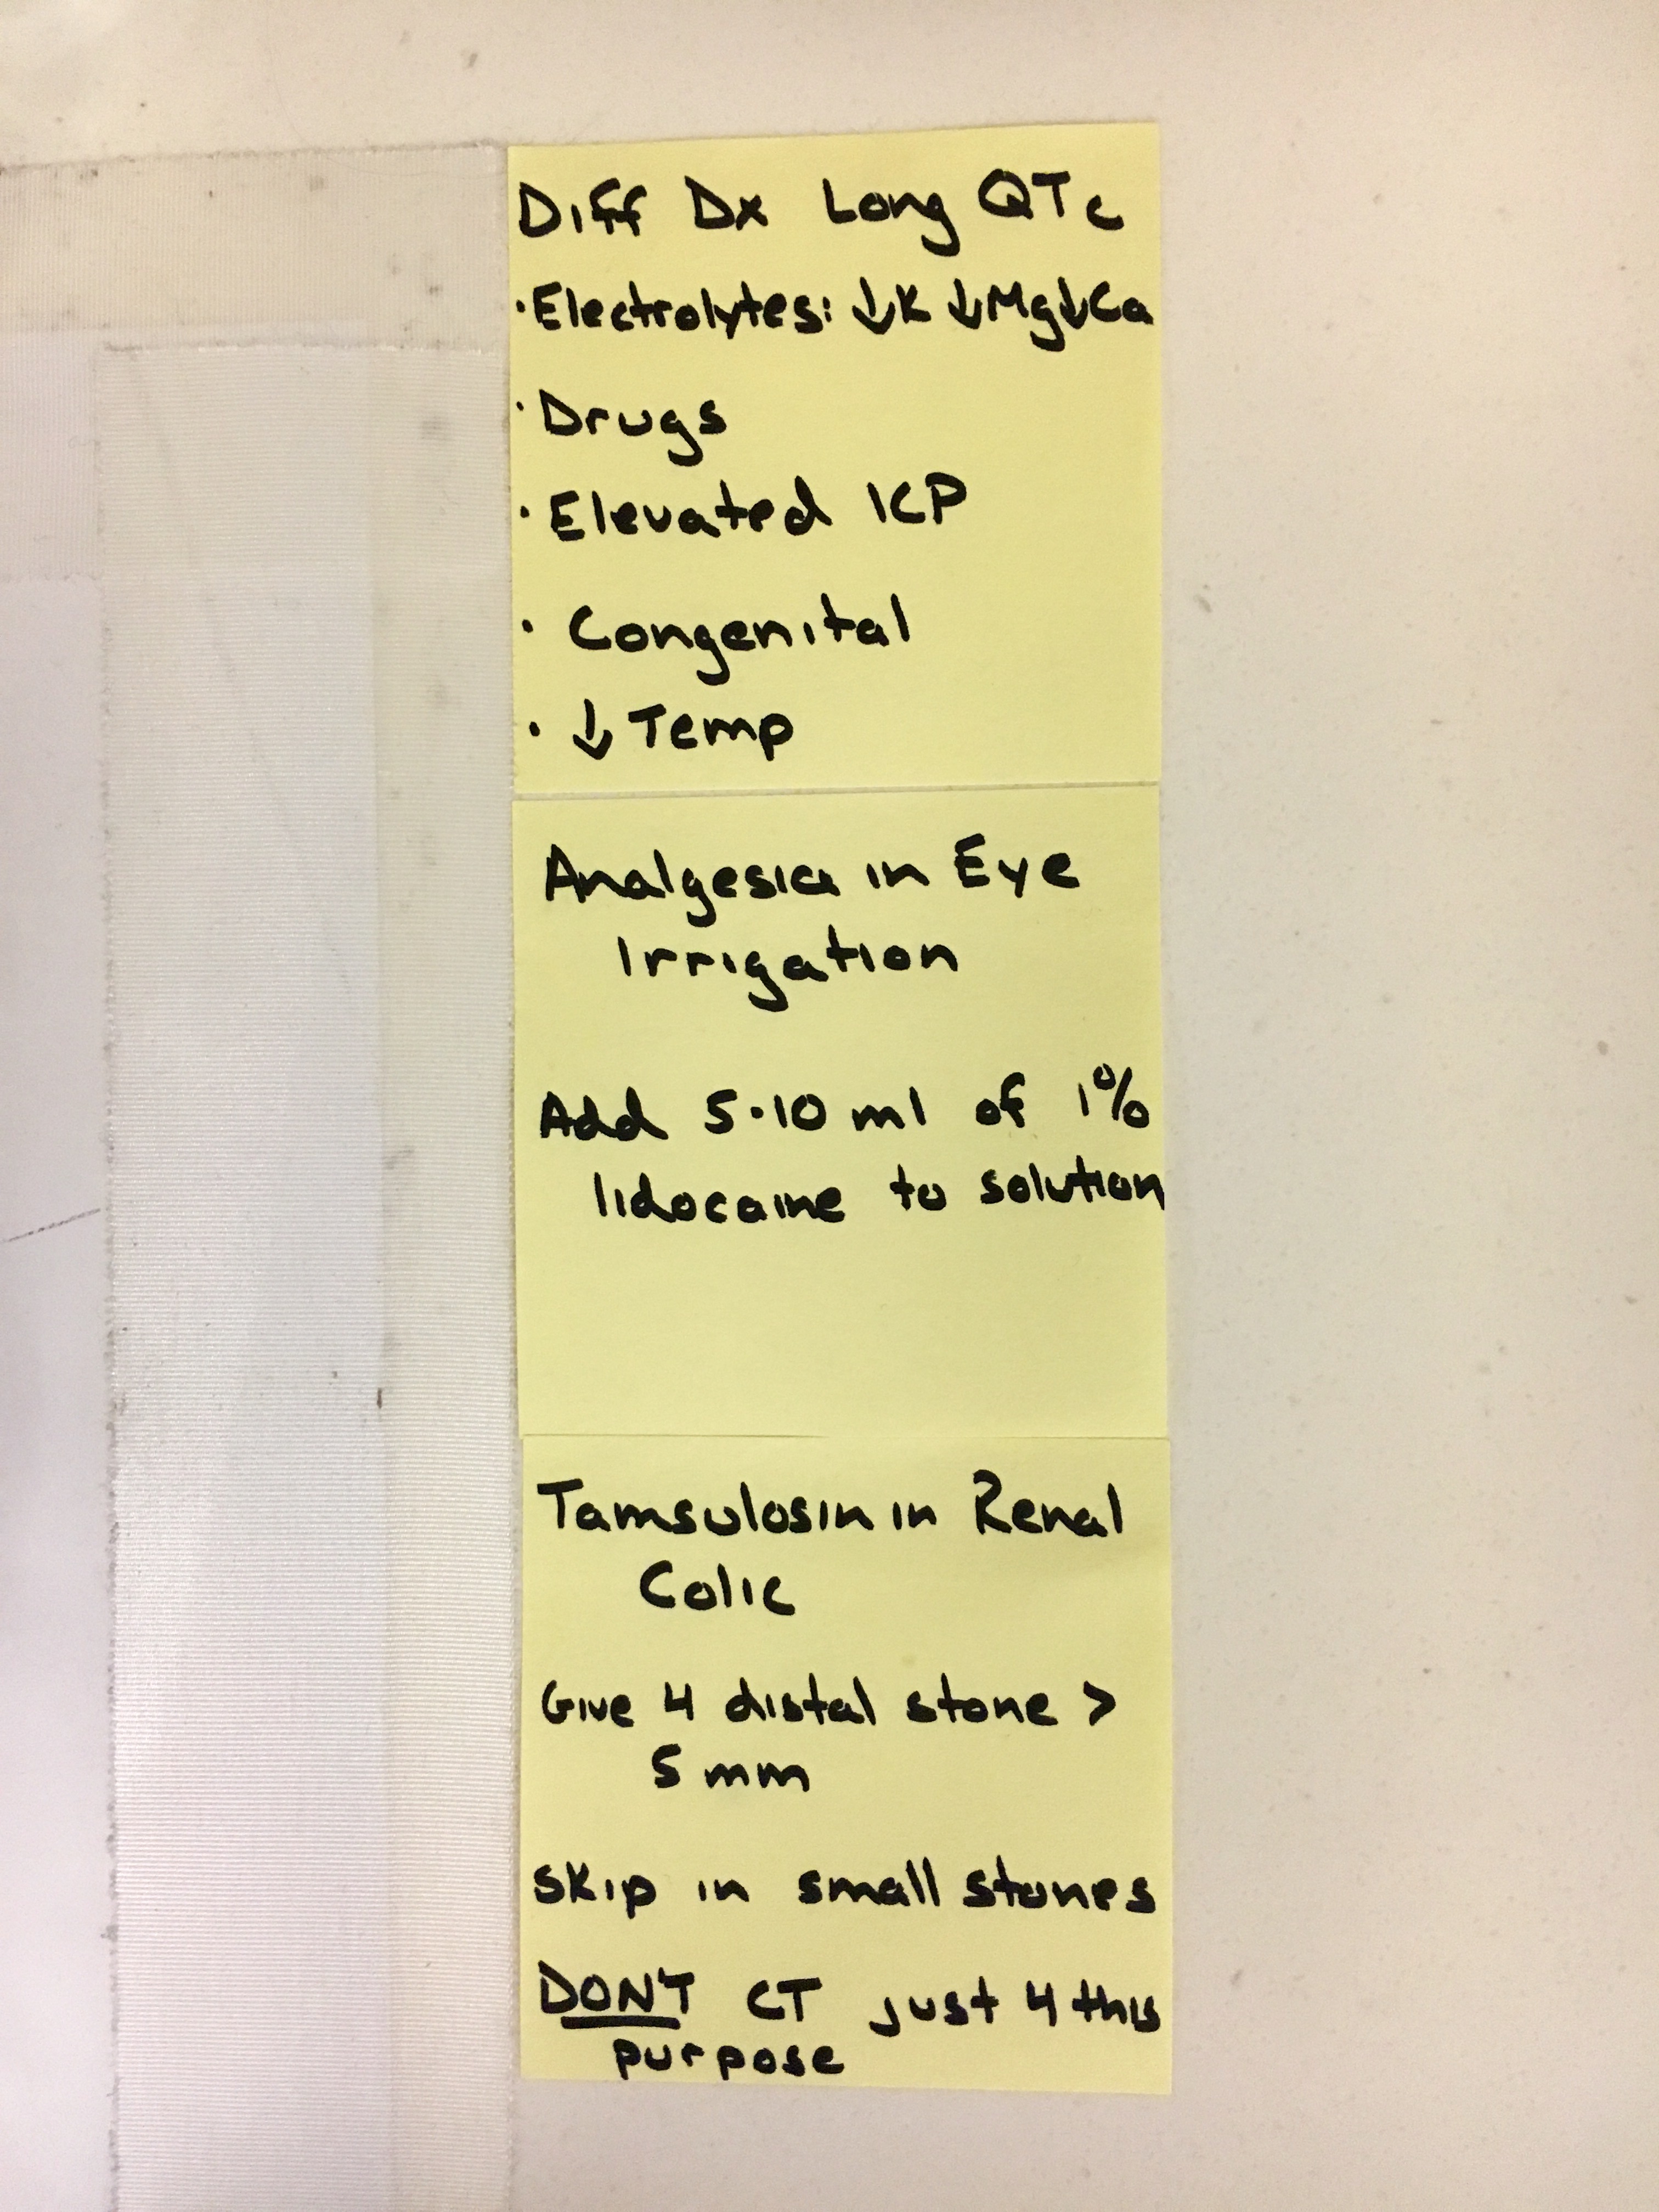 Diff Dx Long QTc
·Electrolytes: ↓K ↓Mg↓Ca
·Drugs
·Elevated ICP
· Congenital
· ↓Temp
Analgesia in Eye
Irrigation
Add 5-10 ml of 1%
lidocaine to solution
Tamsulosin in Renal
Colic
Give 4 distal stone >
5 mm
Skip in small stones
DON'T CT just 4 this
purpose